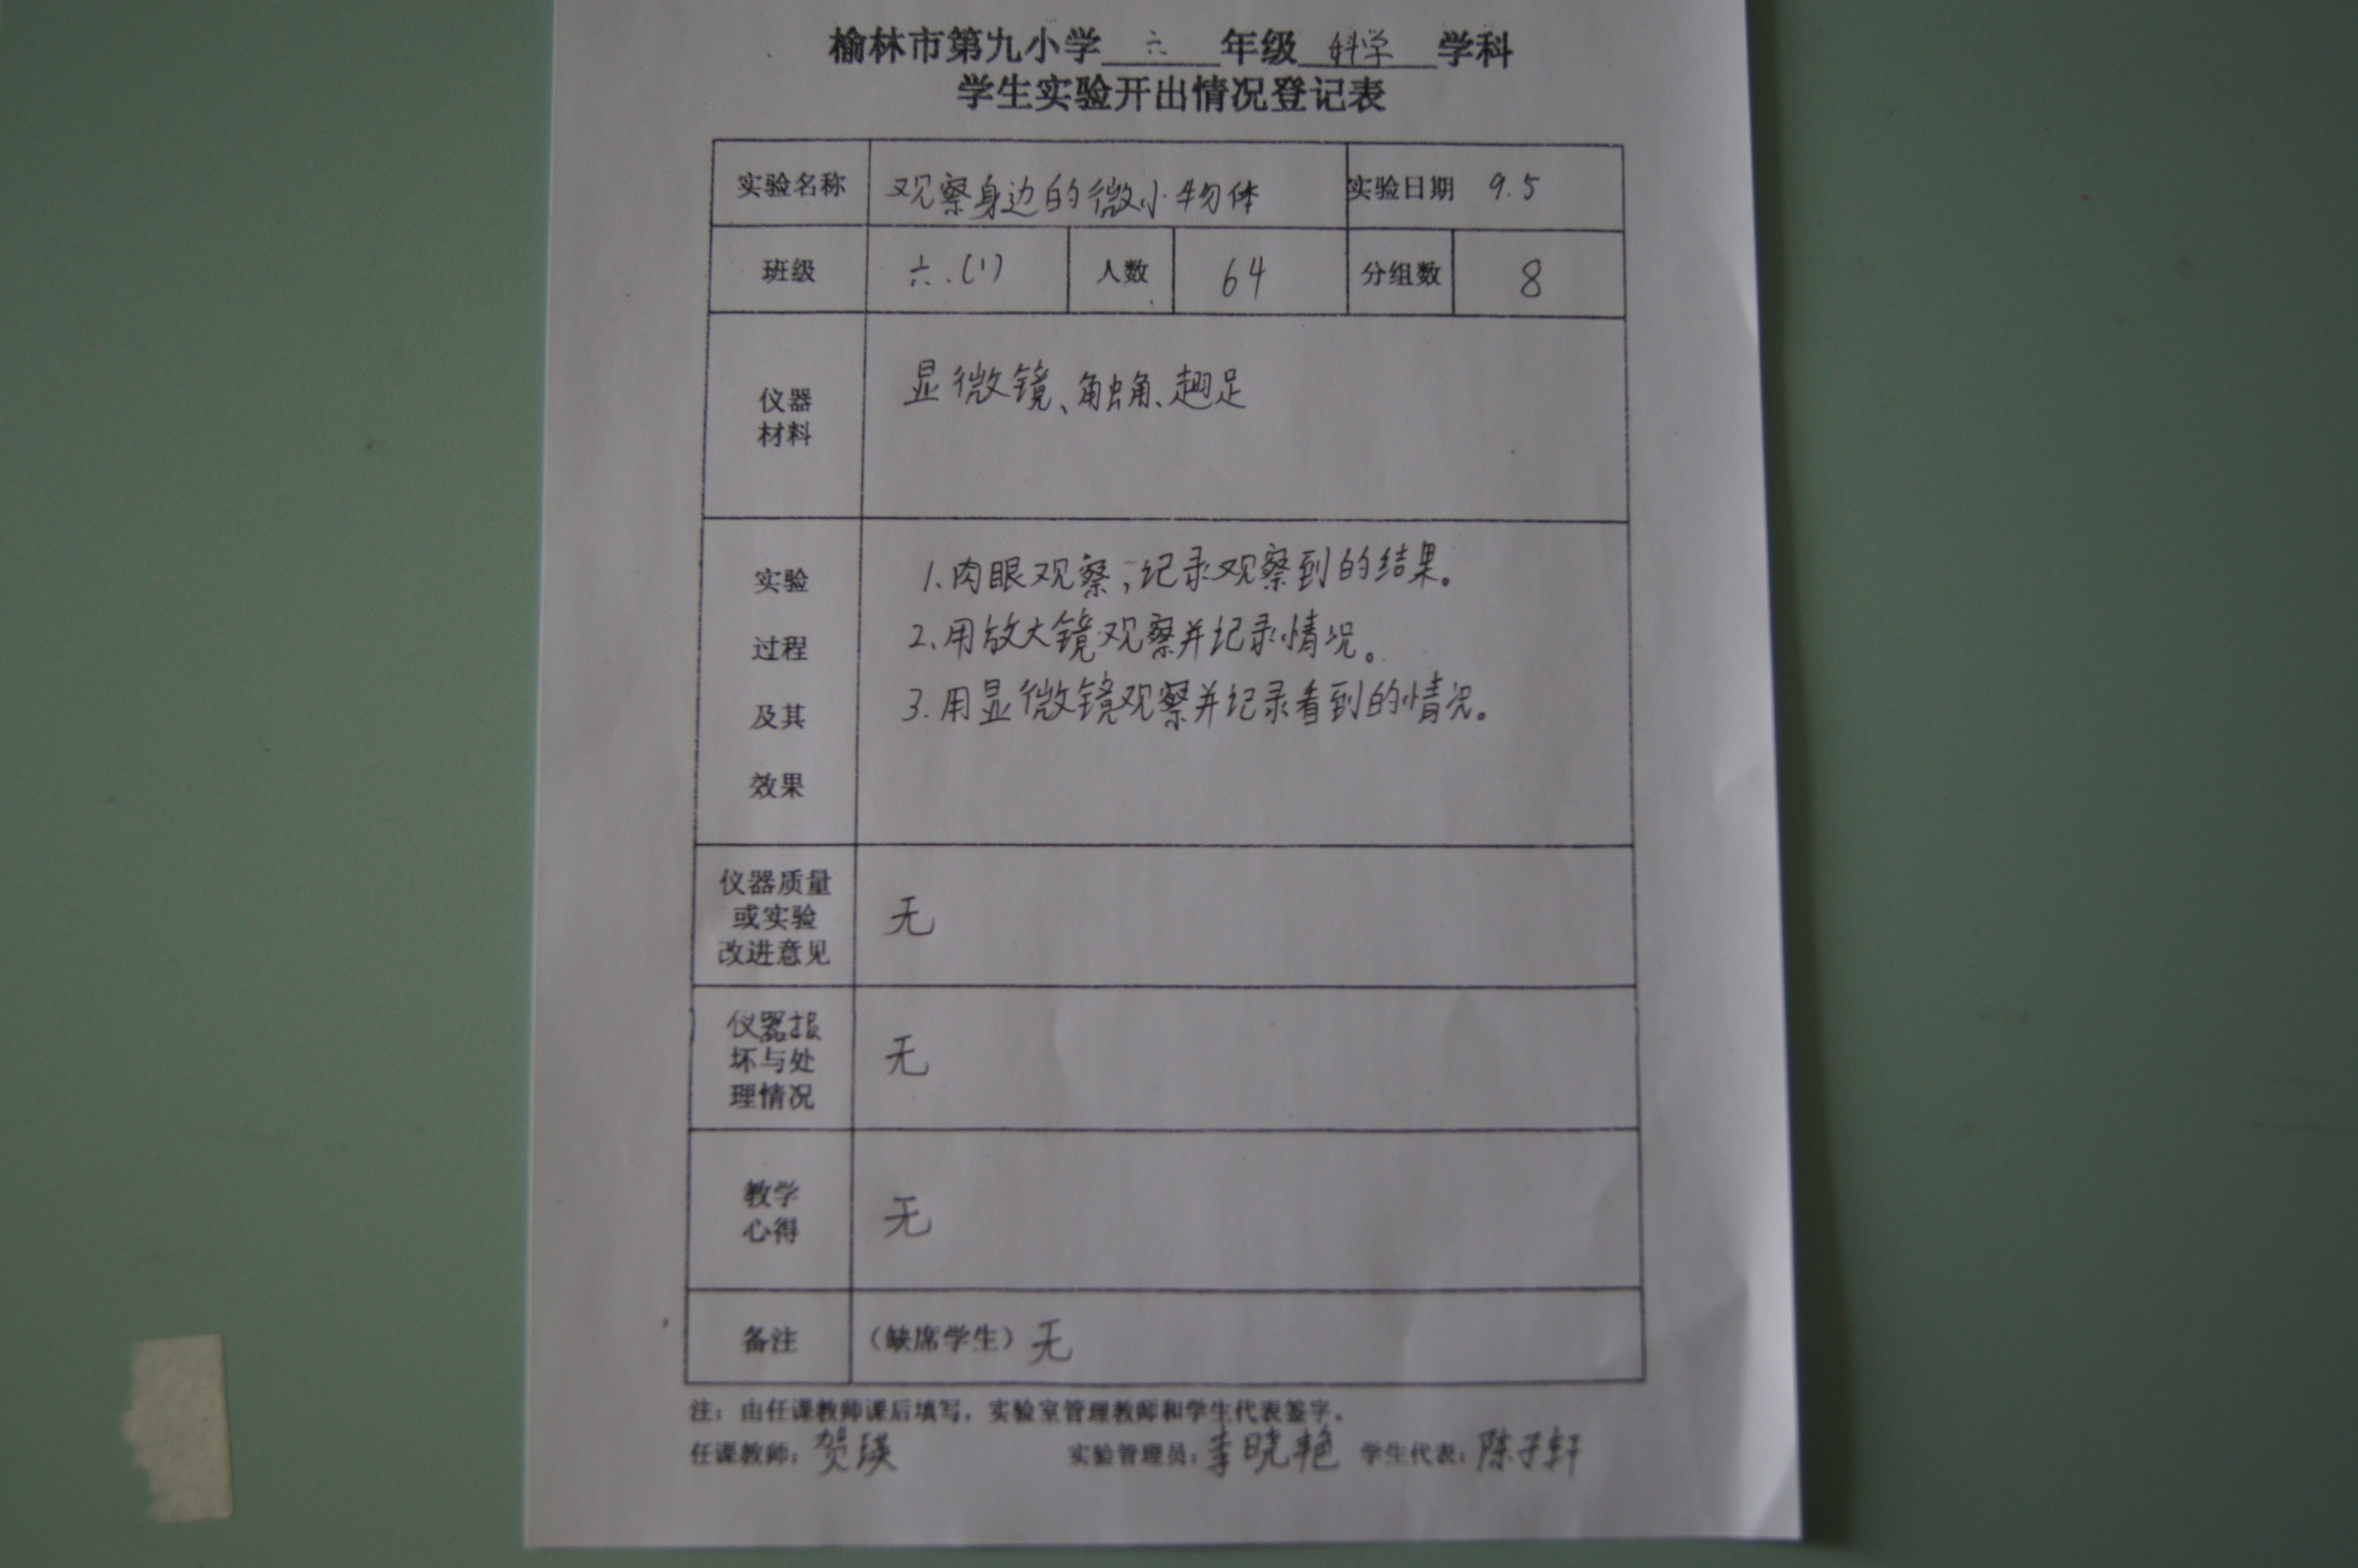 榆林市第九小学 六 年级 科学 学科
学生实验开出情况登记表
实验名称 观察身边的微小物体 实验日期 9.5
班级 六.(1) 人数 64 分组数 8
仪器
材料
显微镜、触角、翅足
实验
过程
及其
效果
1.肉眼观察,记录观察到的结果。
2.用放大镜观察并纪录情况。
3.用显微镜观察并纪录看到的情况。
仪器质量
或实验
改进意见
无
仪器报
坏与处
理情况
无
教学
心得
无
备注 (缺席学生) 无
注:由任课教师课后填写,实验室管理教师和学生代表签字。
任课教师:贺瑛 实验管理员:李晓艳 学生代表:陈子轩